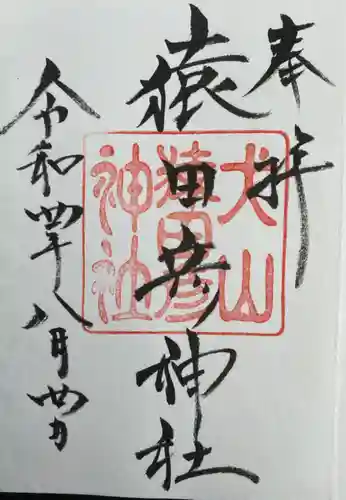 奉拝
猿田彦神社
犬山
猿田彦
神社
令和四年八月廿四日